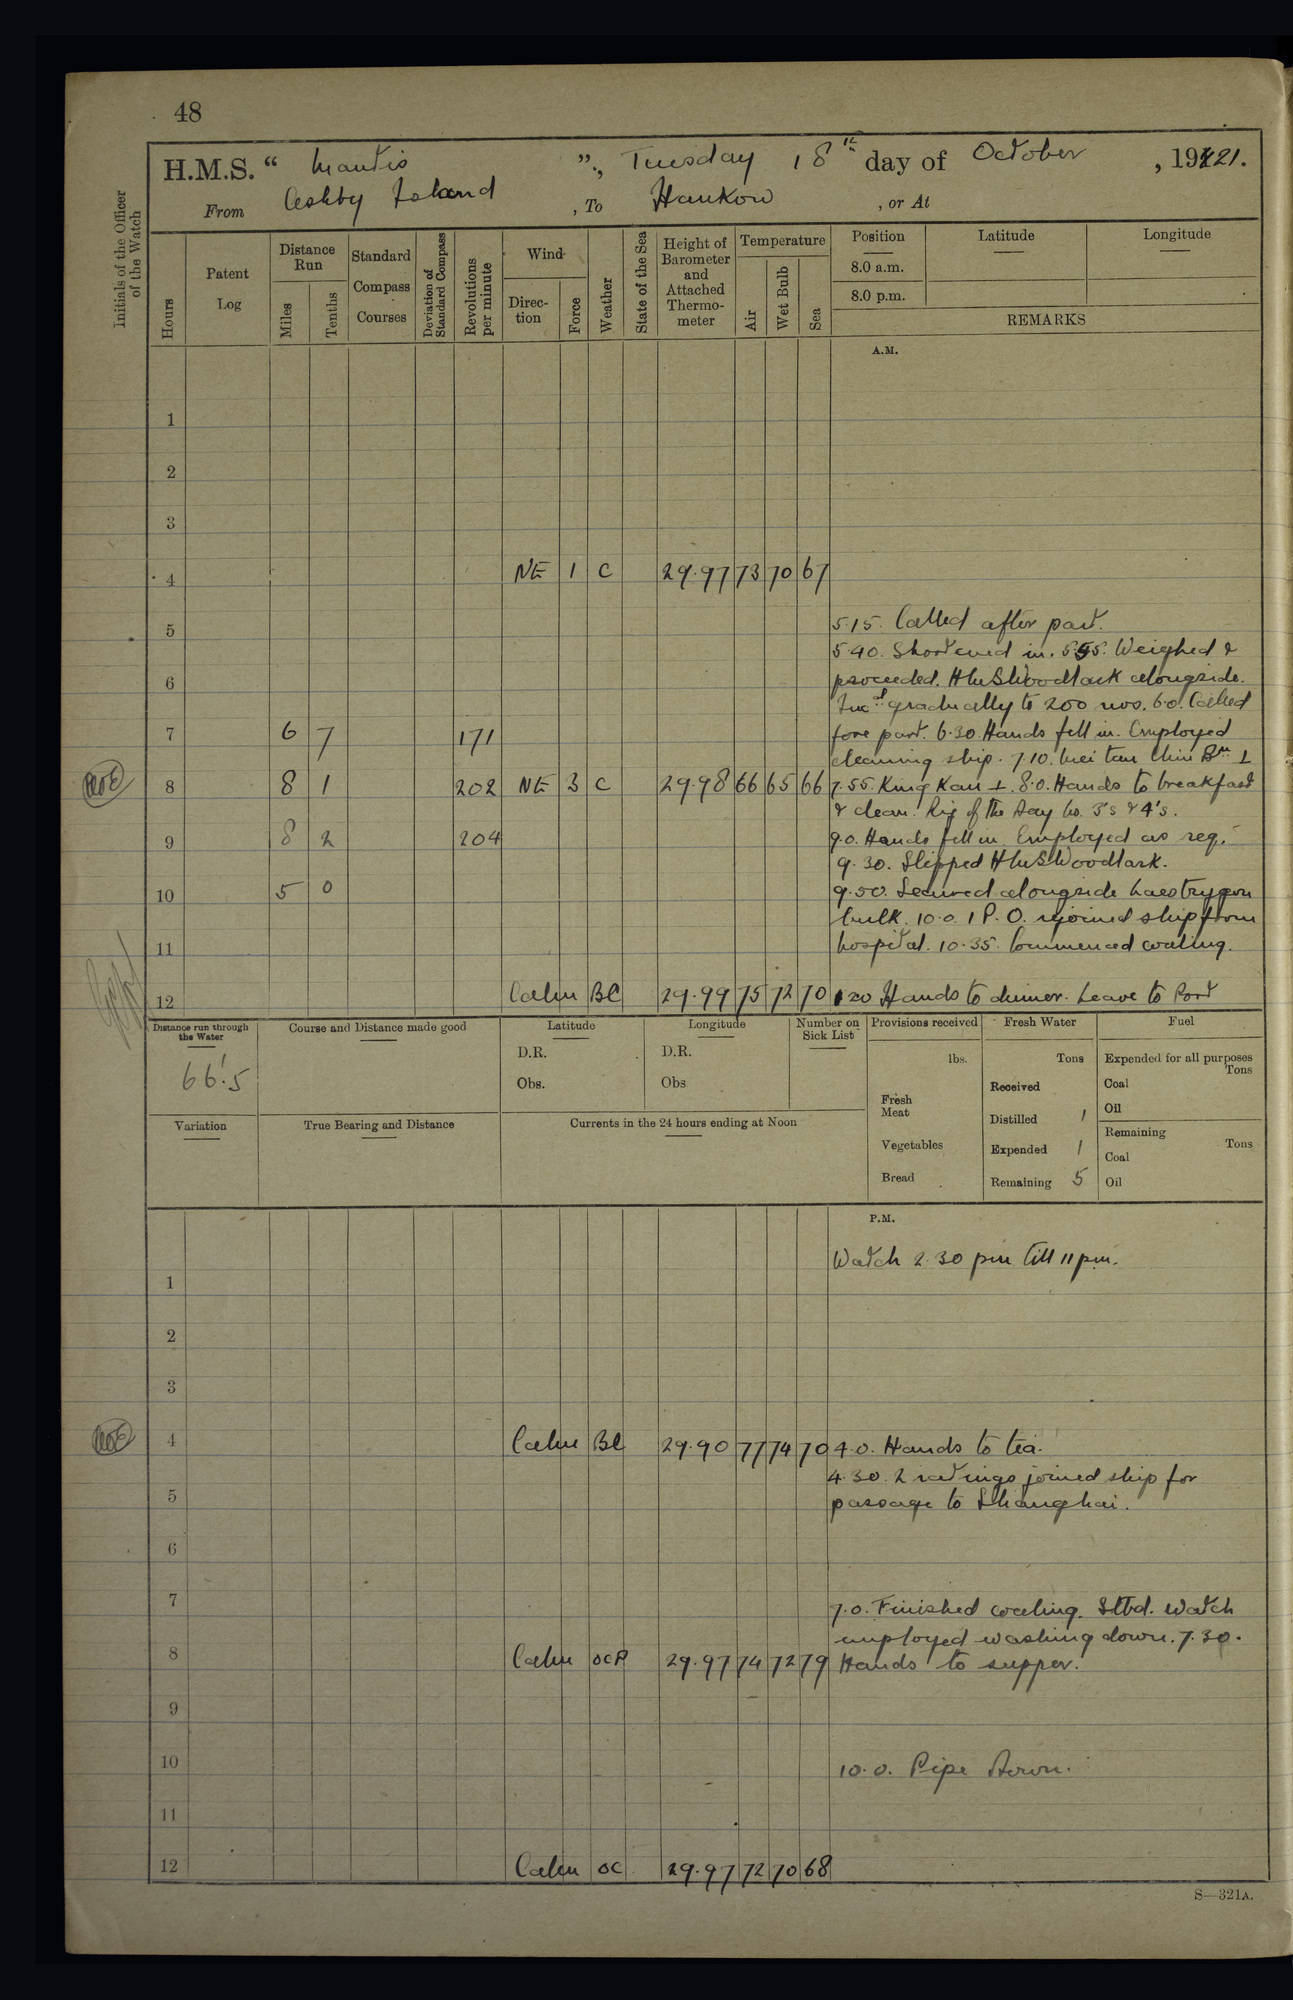 48
H.M.S. “ Mantis ”, Tuesday 18th day of October, 1921.
From Ashby Island, To Hankow, or At
Initials of the Officer of the Watch
Hours
Patent Log
Distance Run
Miles
Tenths
Standard Compass Courses
Deviation of Standard Compass
Revolutions per minute
Wind
Direction
Force
Weather
State of the Sea
Height of Barometer and Attached Thermometer
Temperature
Air
Wet Bulb
Sea
Position
Latitude
Longitude
8.0 a.m.
8.0 p.m.
REMARKS
A.M.
1
2
3
4 NE 1 C 29.97 73 70 67
5 5.15. Called after part.
5.40. Shortened in. 5.55. Weighed &
6 proceeded. HMS Woodlark alongside.
Incd gradually to 200 revs. 6.0. Called
7 6 7 171 fore part. 6.30. Hands fell in. Employed
cleaning ship. 7.10. Mei tan Chin Bn ⊥
8 8 1 202 NE 3 C 29.98 66 65 66 7.55. King Kau ⊥. 8.0. Hands to breakfast
& clean. Rig of the day No. 3's & 4's.
9 8 2 204 9.0. Hands fell in. Employed as req.
9.30. Slipped HMS Woodlark.
10 5 0 9.50. Secured alongside Laestrygon
hulk. 10.0. 1 P.O. rejoined ship from
11 hospital. 10.35. Commenced coaling.
12 Calm BC 29.99 75 72 70 Hands to dinner. Leave to Port
Distance run through the Water
66'.5
Course and Distance made good
Latitude
D.R.
Obs.
Longitude
D.R.
Obs
Number on Sick List
Provisions received
lbs.
Fresh Meat
Vegetables
Bread
Fresh Water
Tons
Received
Distilled 1
Expended 1
Remaining 5
Fuel
Expended for all purposes
Tons
Coal
Oil
Remaining
Tons
Coal
Oil
Variation
True Bearing and Distance
Currents in the 24 hours ending at Noon
P.M.
Watch 2.30 pm till 11 pm.
1
2
3
4 Calm BC 29.90 77 74 70 4.0. Hands to tea.
4.30. 2 ratings joined ship for
5 passage to Shanghai.
6
7 7.0. Finished coaling. Stbd. Watch
employed washing down. 7.30.
8 Calm OCR 29.97 74 72 79 Hands to supper.
9
10 10.0. Pipe Down.
11
12 Calm OC 29.97 72 70 68
S—321A.